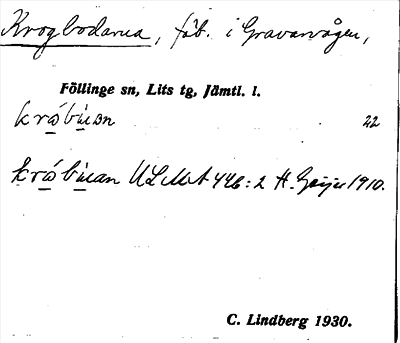 Krogbodarna, fäb. i Gravarvågen,
Föllinge sn, Lits tg, Jämtl. l.
krábùan 22
krábùan ULMA 446:2 H. Geijer 1910.
C. Lindberg 1930.